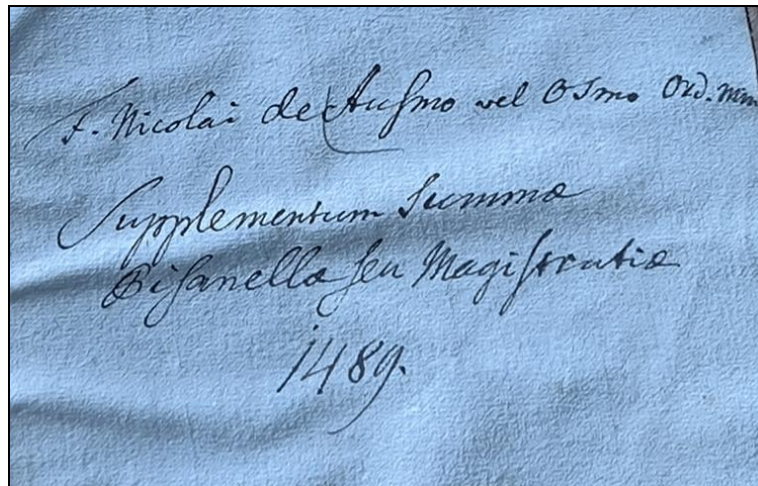 F. Nicolai de Auſmo vel Osmo Ord. Min
Supplementum Summæ
Piſanellæ ſeu Magiſtrutiæ
1489.